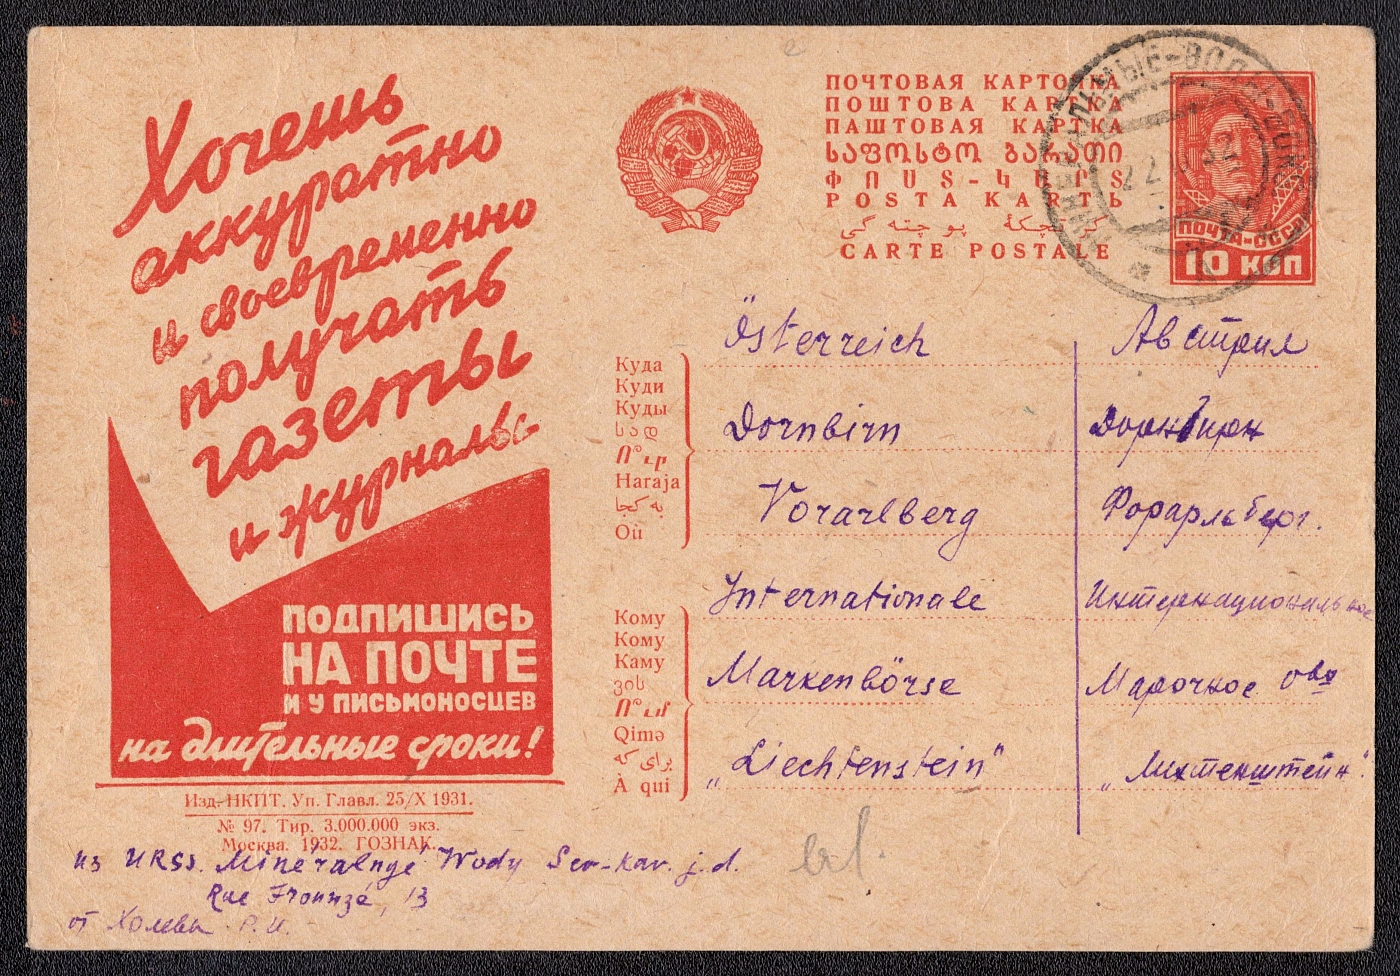 Хочешь
аккуратно
и своевременно
получать
газеты
и журналы
ПОДПИШИСЬ
НА ПОЧТЕ
И У ПИСЬМОНОСЦЕВ
на длительные сроки!
Изд. НКПТ. Уп. Главл. 25/X 1931.
№ 97. Тир. 3.000.000 экз.
Москва. 1932. ГОЗНАК.
из URSS. Minéralnyé Wody Sev-kav. j.d.
Rue Frounzé, 13
от Холевы Р.И.
ПОЧТОВАЯ КАРТОЧКА
ПОШТОВА КАРТКА
ПАШТОВАЯ КАРТКА
ႱႠႴႭႱႲႭ ႡႠႰႠႧႨ
ՓՈՍՏ-ՔԱՐՏ
POSTA KARTЬ
CARTE POSTALE
ПОЧТА-СССР
10 КОП
Куда
Куди
Куды
სად
Ո՞ւր
Haraja
به کجا
Où
Кому
Кому
Каму
ვის
Ո՞ւմ
Qimə
برای که
À qui
Österreich
Dornbirn
Vorarlberg
Internationale
Markenbörse
„Liechtenstein"
Австрия
Дорнбирн
Форарльберг.
Интернациональное
Марочное о-во
„Лихтенштейн".